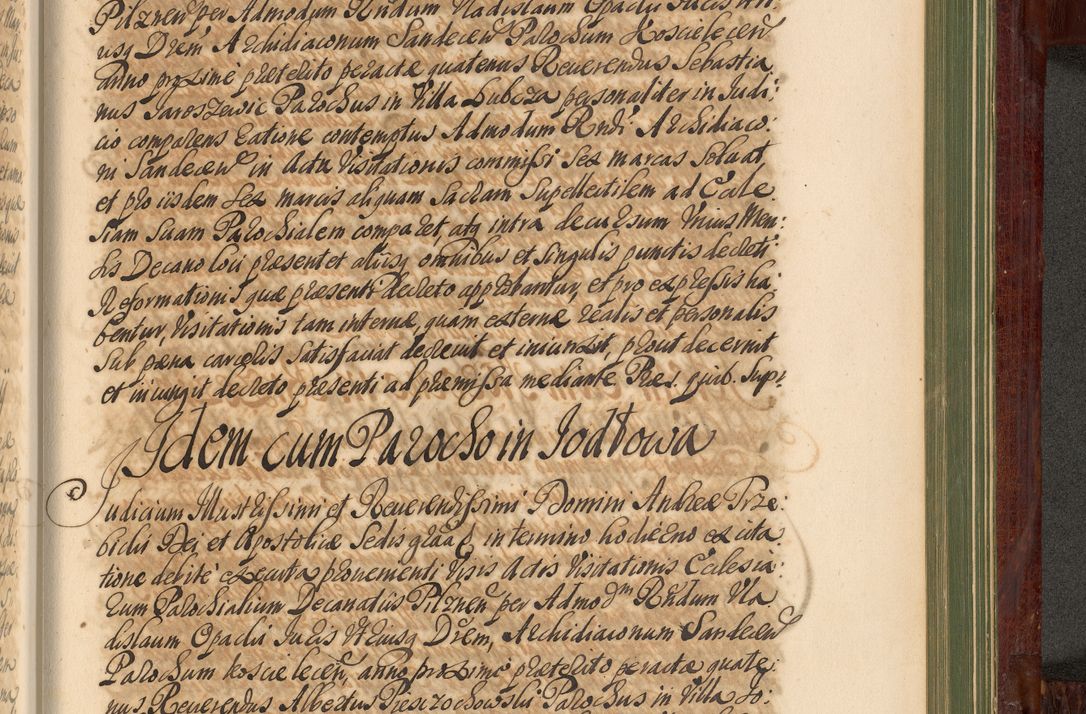 Pilznen per Admodum Rndum Vladislaum Opacki Juris Utri
usq Drem Archidiaconum Sandecen Parochum Koscielecen
anno proxime præterito peractæ quatenus Reverendus Sebastia
nus Jaroszewic Parochus in Villa Lubcza personaliter in Judi:
cio comparens ratione contemptus Admodum Rndi Archidiaco:
ni Sandecen in Actu Visitationis commissi Sex marcas Soluat,
et pro iisdem Sex marcis aliquam Sacram Supellectilem ad Eccle
siam suam Parochialem comparet, atq intra decursum Unius Men:
sis Decano loci præsentet aliisq omnibus et Singulis punctis decreti
Reformationis quæ præsenti decreto approbantur, et pro expressis ha
bentur, Visitationis tam internæ, quam externæ realis et personalis
Sub pæna carceris Satisfaciat decreuit et iniunxit, prout decernit
et iniungit decreto præsenti ad præmissa mediante Præs. quib. Supr.
Idem cum Parocho in Jodłowa
Judicium Illustrissimi et Reuerendissimi Domini Andreæ Trze:
bicki Dei et Apostolicæ Sedis graa in termino hodierno ex cita
tione debite executa prouenienti Visis Actis Visitationis Ecclesia:
rum Parochialium Decanatus Pilznen per Admodm Rndum Vla
dislaum Opacki Juris Utriusq Drem, Archidiaconum Sandecen
Parochum Koscielecen, anno proxime præterito peractæ quate:
nus Reuerendus Albertus Pieszchowski Parochus in Villa Jo: